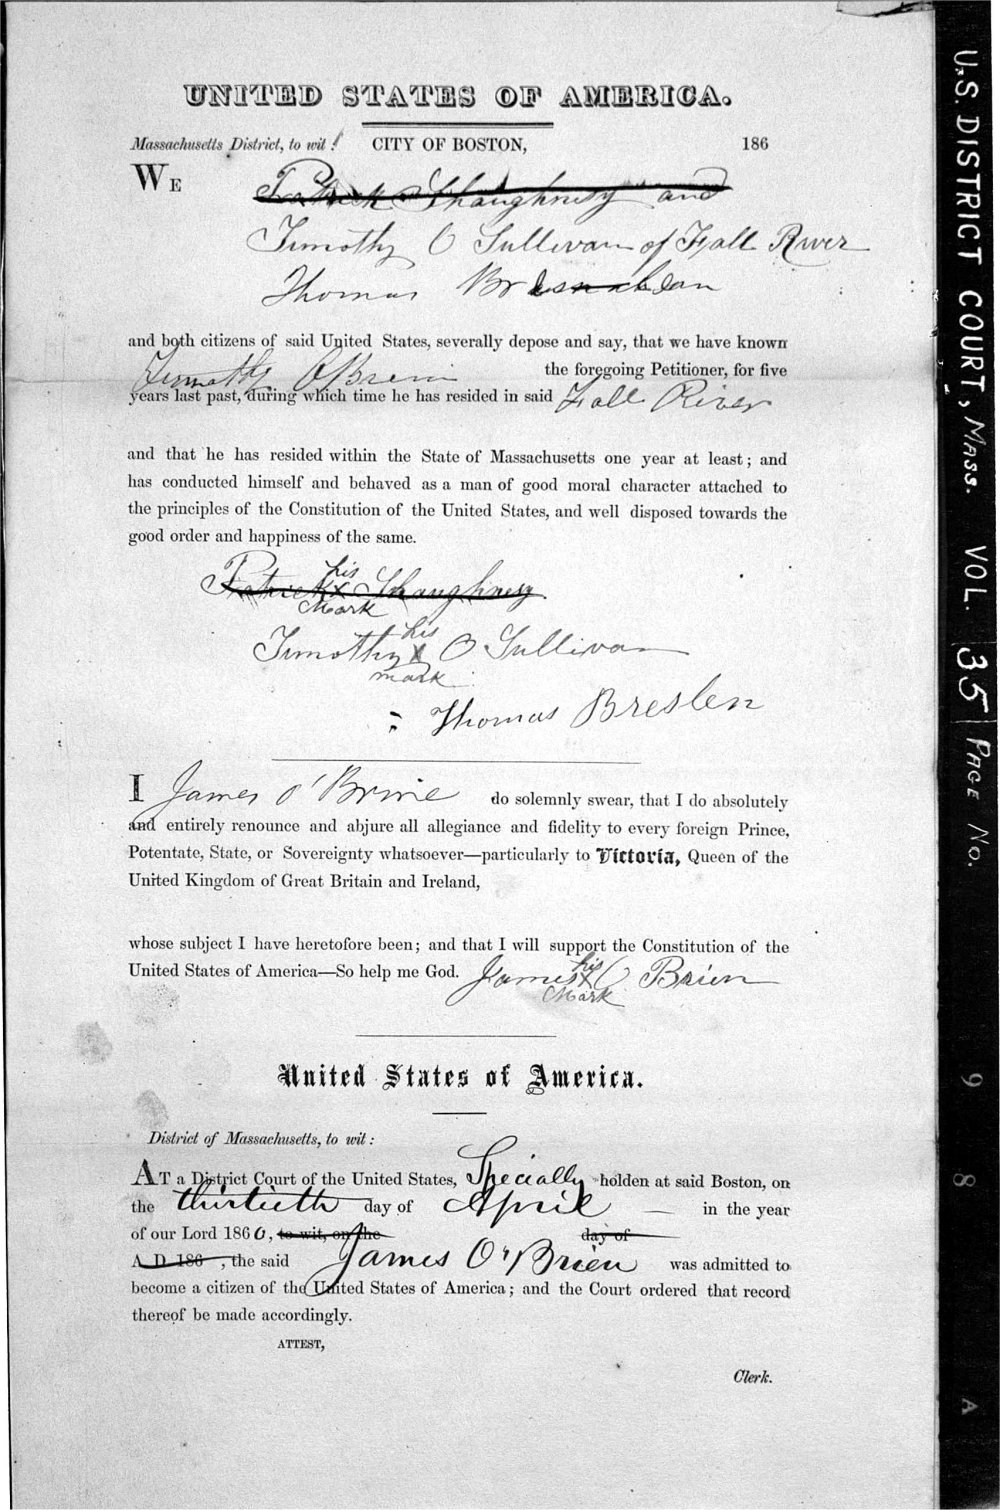 UNITED STATES OF AMERICA.
Massachusetts District, to wit: CITY OF BOSTON, 186
WE
Patrick Shaughnesy and
Timothy O Sullivan of Fall River
Thomas
and both citizens of said United States, severally depose and say, that we have known
Timothy OBrein the foregoing Petitioner, for five
years last past, during which time he has resided in said Fall River
and that he has resided within the State of Massachusetts one year at least; and
has conducted himself and behaved as a man of good moral character attached to
the principles of the Constitution of the United States, and well disposed towards the
good order and happiness of the same.
his
Patrick X Shaughnesy
Mark
his
Timothy X O Sullivan
mark
Thomas Breslen
I James O'Brine do solemnly swear, that I do absolutely
and entirely renounce and abjure all allegiance and fidelity to every foreign Prince,
Potentate, State, or Sovereignty whatsoever—particularly to Victoria, Queen of the
United Kingdom of Great Britain and Ireland,
whose subject I have heretofore been; and that I will support the Constitution of the
his
United States of America—So help me God. James X O Brien
Mark
United States of America.
District of Massachusetts, to wit:
AT a District Court of the United States, Specially holden at said Boston, on
the thirtieth day of April — in the year
of our Lord 1860, to wit, on the day of
A D 186 , the said James O'Brien was admitted to
become a citizen of the United States of America; and the Court ordered that record
thereof be made accordingly.
ATTEST,
Clerk.
U.S. DISTRICT COURT, MASS. VOL. 35 PAGE NO.
9 8 A